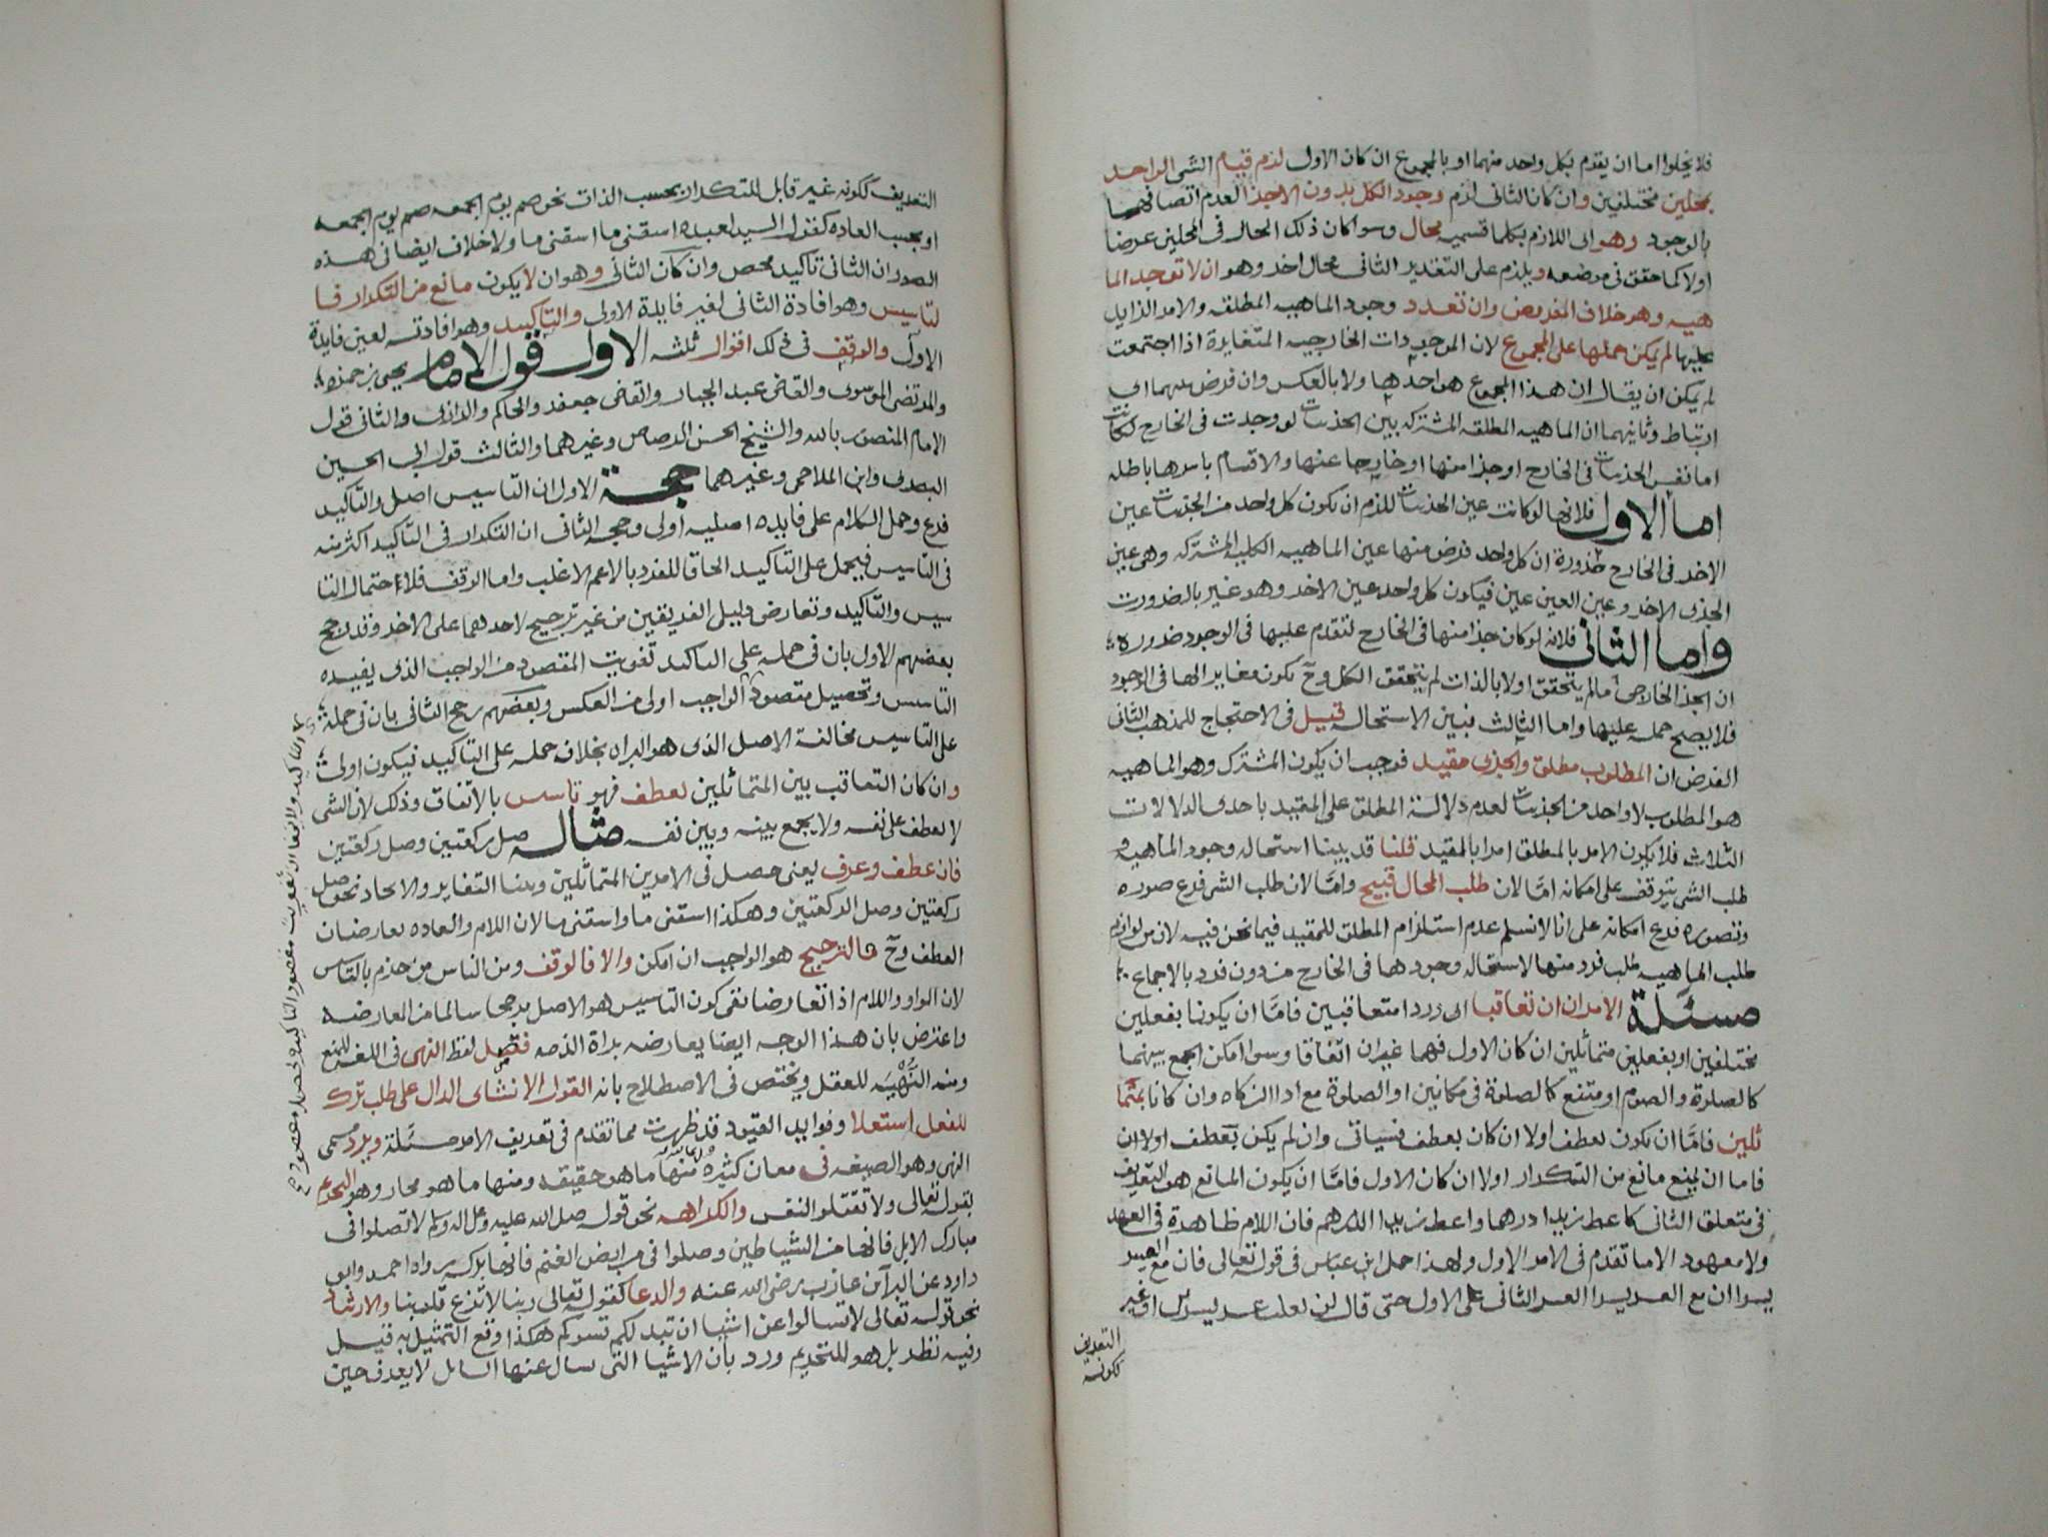 فلا يخلوا اما ان يقدم بكل واحد منهما او بالمجموع ان كان الاول لزم قيام الشي الواحد
بمحلين مختلفين وان كان الثاني لزم وجود الكل بدون الاجزا لعدم اتصافها
بالوجود وهو اى اللازم بكلا قسميه محال وسوا كان ذلك الحال في المحلين عرضا
اولا كما حقق في موضعه ويلزم على التقدير الثاني محال اخر وهو ان لا توجد الما
هيه وهو خلاف المفروض وان تعدد وجود الماهيه المطلقه والامر الزايد
عليها لم يمكن حملها على المجموع لان الموجودات الخارجيه المتغايرة اذا اجتمعت
لم يمكن ان يقال ان هذا المجموع هو احدها ولا بالعكس وان فرض بينهما اى
ارتباط وثانيهما ان الماهيه المطلقه المشتركه بين الجزئيات لو وجدت في الخارج لكانت
اما نفس الجزئيات في الخارج او جزا منها او خارجا عنها والاقسام باسرها باطله
اما الاول فلانها لو كانت عين الجزئيات للزم ان يكون كل واحد من الجزئيات عين
الاخر في الخارج ضرورة ان كل واحد فرض منها عين الماهيه الكليه المشتركه وهي عين
الجزى الاخر وعين العين عين فيكون كل واحد عين الاخر وهو غير بالضرورت
واما الثاني فلانه لو كان جزا منها في الخارج لتقدم عليها في الوجود ضروره
ان الجز الخارجي ما لم يتحقق اولا بالذات لم يتحقق الكل وح يكون مغايرا لها في الوجود
فلا يصح حمله عليها واما الثالث فبين الاستحاله قيل في الاحتجاج للمذهب الثاني
الفرض ان المطلوب مطلق والجزى مقيد فوجب ان يكون المشترك وهو الماهيه
هو المطلوب لا واحد من الجزئيات لعدم دلالة المطلق على المقيد باحدى الدلالات
الثلاث فلا يكون الامر بالمطلق امرا بالمقيد قلنا قد بينا استحاله وجود الماهيه و
طلب الشي يتوقف على امكانه امّا لان طلب المحال قبيح وامّا لان طلب الشي فرع صوره
وتصوره فرع امكانه على انا لا نسلم عدم استلزام المطلق للمقيد فيما نحن فيه لان من لوازم
طلب الماهيه طلب فرد منها لاستحاله وجودها في الخارج من دون فرد بالاجماع
مسئلة الامران ان تعاقبا اى وردا متعاقبين فامّا ان يكونا بفعلين
مختلفين او بفعلين متماثلين ان كان الاول فهما غيران اتفاقا وسوا امكن الجمع بينهما
كالصلوة والصوم او متنع كالصلوة في مكانين او الصلوة مع ادا الزكاه وان كانا بمتما
ثلين فامّا ان يكون بعطف اولا ان كان بعطف فسياتي وان لم يكن بعطف اولا ان
فاما ان يمنع مانع من التكرار اولا ان كان الاول فامّا ان يكون المانع هو التعريف
في متعلق الثاني كاعط زيدا درهما واعط زيدا الدرهم فان اللام ظاهرة في العهد
ولا معهود الا ما تقدم في الامر الاول ولهذا حمل ابن عباس في قوله تعالى فان مع العسر
يسرا ان مع العسر يسرا العسر الثاني على الاول حتى قال لن يغلب عسر يسرين او غير
التعريف
ككونه
التعريف ككونه غير قابل للتكرار بحسب الذات نحو صم يوم الجمعه صم يوم الجمعه
او بحسب العاده كقول السيد لعبده اسقني ما اسقني ما ولا خلاف ايضا في هذه
الصور ان الثاني تاكيد محض وان كان الثاني وهو ان لا يكون مانع من التكرار فا
لتاسيس وهو افادة الثاني لغير فايدة الاولى والتاكيد وهو افادته لعين فايدة
الاول والوقف في ذلك اقوال ثلثه الاول قول الامام يحيى بن حمزه
والمرتضى الموسوى والقاضي عبد الجبار والقاضي جعفر والحاكم والرازى والثاني قول
الامام المنصور بالله والشيخ الحسن الرصاص وغيرهما والثالث قول ابى الحسين
البصرى وابن الملاحمي وغيرهما حجة الاول ان التاسيس اصل والتاكيد
فرع وحمل الكلام على فايده اصليه اولى وحجه الثاني ان التكرار في التاكيد اكثر منه
في التاسيس فيحمل على التاكيد الحاقا للفرد بالاعم الاغلب واما الوقف فلاحتمال التا
سيس والتاكيد وتعارض دليل الفريقين من غير ترجيح لاحدهما على الاخر وقد رجح
بعضهم الاول بان في حمله على التاكيد تفويت المقصود من الواجب الذى يفيده
التاسس وتحصيل مقصود الواجب اولى من العكس وبعضهم رجح الثاني بان في حمله
على التاسيس مخالفة الاصل الذى هو البراه بخلاف حمله على التاكيد فيكون اولى
وان كان التعاقب بين المتماثلين بعطف فهو تاسس بالاتفاق وذلك لان الشي
لا يعطف على نفسه ولا يجمع بينه وبين نفسه مثاله صل ركعتين وصل ركعتين
فان عطف وعرف يعنى حصل في الامرين المتماثلين وبنا التغاير والاتحاد نحو صل
ركعتين وصل الركعتين وهكذا اسقني ما واسقني ما لان اللام والعاده يعارضان
العطف وح فالترجيح هو الواجب ان امكن والا فالوقف ومن الناس من جزم بالتاسس
لان الواو واللام اذا تعارضا نفى كون التاسيس هو الاصل مرجحا سالما من المعارضه
واعترض بان هذا الوجه ايضا يعارضه براة الذمه فصل لفظ النهى في اللغه للمنع
ومنه النُهْيَه للعقل ويختص في الاصطلاح بانه القول الانشاى الدال على طلب ترك
للفعل استعلا وفوايد القيود قد ظهرت مما تقدم في تعريف الامر مسئلة ويرد مسمى
النهى وهو الصيغه في معان كثيره منها ما هو حقيقه ومنها ما هو مجاز وهو التحريم
لقوله تعالى ولا تقتلوا النفس والكراهه نحو قوله صلى الله عليه وعلى اله وسلم لا تصلوا في
مبارك الابل فانها من الشياطين وصلوا في مرابض الغنم فانها بركه رواه احمد وابو
داود عن البرآ بن عازب رضى الله عنه والدعا كقوله تعالى ربنا لا تزغ قلوبنا والارشاد
نحو قوله تعالى لا تسالوا عن اشيا ان تبد لكم تسوكم هكذا وقع التمثيل به قيل
وفيه نظر بل هو للتحريم ورد بان الاشيا التى سال عنها السايل لا يعرف حين